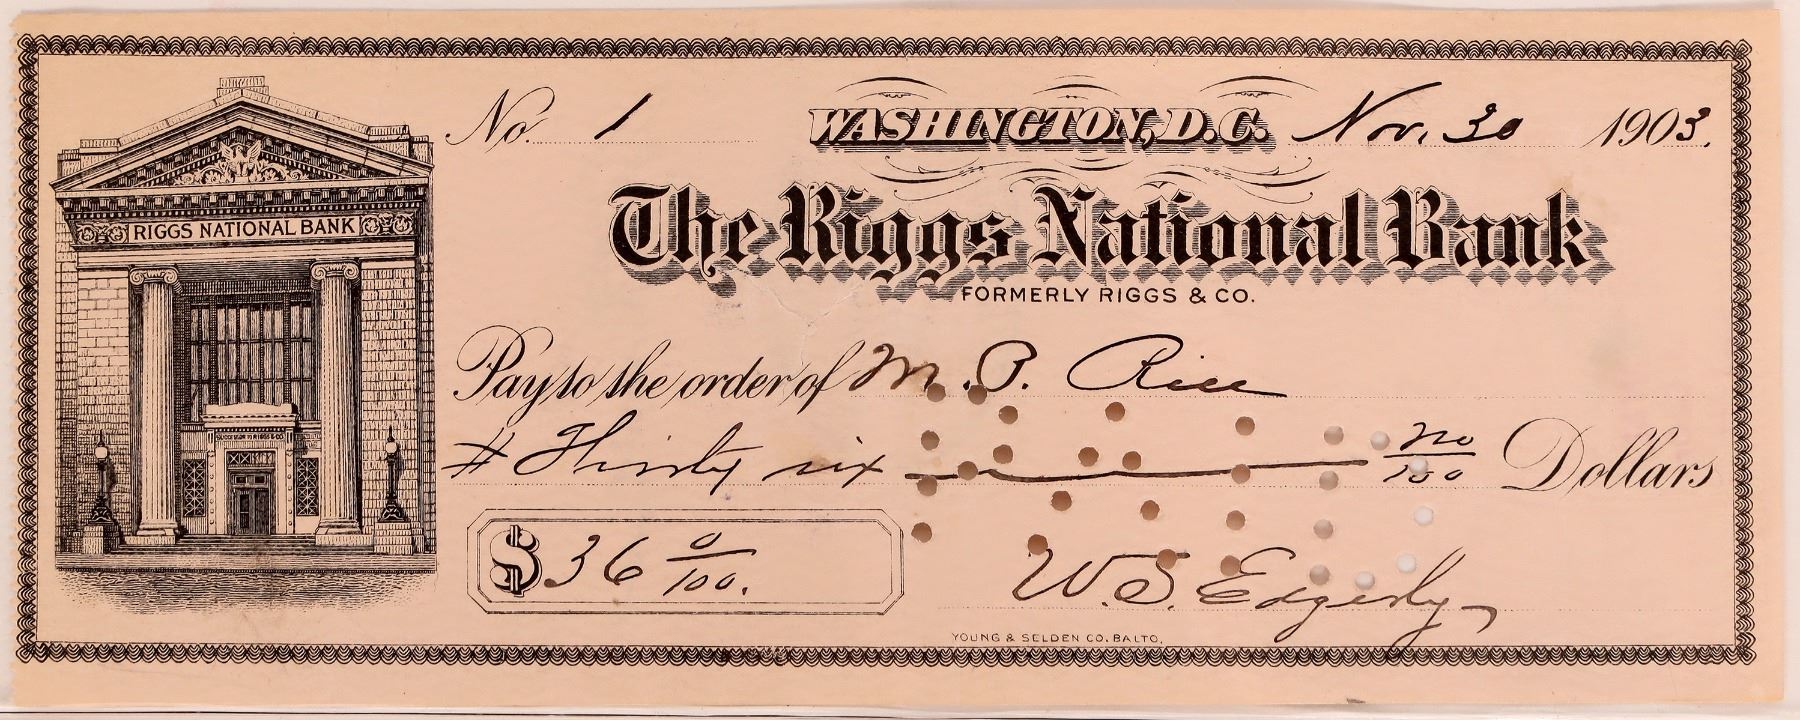 No. 1 WASHINGTON, D.C. Nov. 30 1903.
RIGGS NATIONAL BANK
The Riggs National Bank
FORMERLY RIGGS & CO.
Pay to the order of M. P. Rice
# Thirty six no/100 Dollars
SUCCESSOR TO RIGGS & CO
$ 36 0/100.
W. S. Edgerly
YOUNG & SELDEN CO. BALTO.